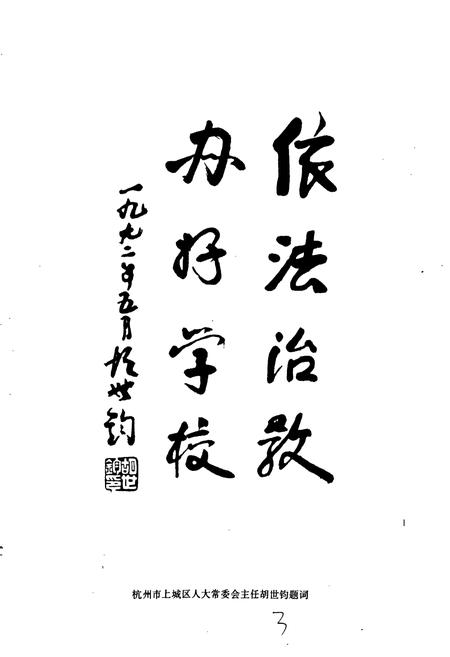 依法治教
办好学校
一九九二年五月胡世钧
胡世钧印
杭州市上城区人大常委会主任胡世钧题词
3